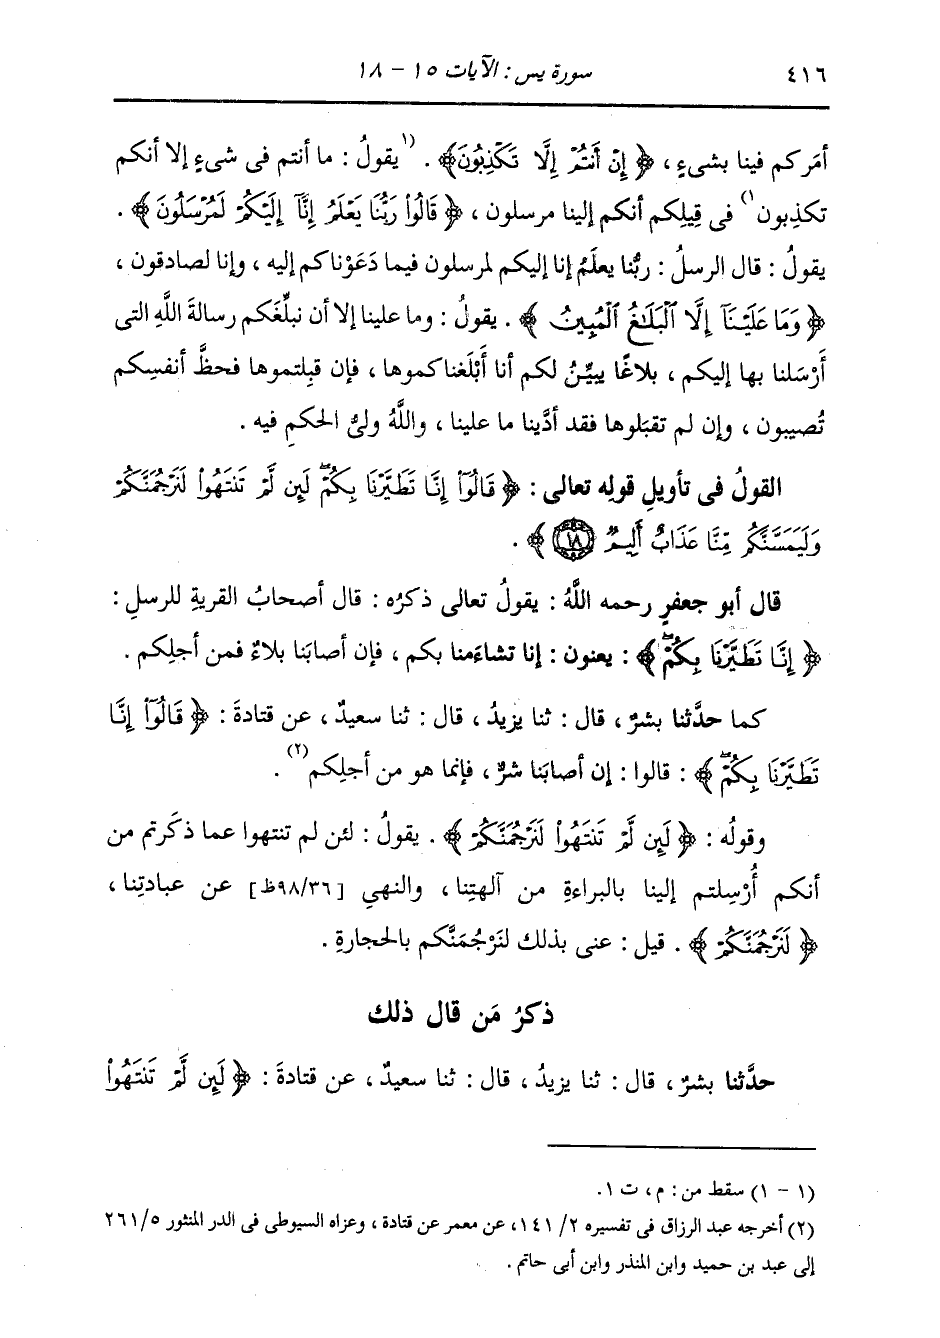 ٤١٦ سورة يس : الآيات ١٥ - ١٨
أمَركم فينا بشىءٍ ، ﴿ إِنْ أَنتُمْ إِلَّا تَكْذِبُونَ﴾ . (١يقولُ : ما أنتم فى شىءٍ إلا أنكم
تكذِبون١) فى قِيلِكم أنكم إلينا مرسلون ، ﴿ قَالُوا۟ رَبُّنَا يَعْلَمُ إِنَّآ إِلَيْكُمْ لَمُرْسَلُونَ ﴾ .
يقولُ : قال الرسلُ : ربُّنا يعلَمُ إنا إليكم لمرسلون فيما دَعَوْناكم إليه ، وإنا لصادقون ،
﴿ وَمَا عَلَيْنَآ إِلَّا ٱلْبَلَٰغُ ٱلْمُبِينُ ﴾ . يقولُ : وما علينا إلا أن نبلِّغَكم رسالةَ اللَّهِ التى
أَرْسَلنا بها إليكم ، بلاغًا يبيِّنُ لكم أنا أَبْلَغناكموها ، فإن قبِلتموها فحظَّ أنفسِكم
تُصيبون ، وإن لم تقبَلوها فقد أدَّينا ما علينا ، واللَّهُ ولىُّ الحكمِ فيه .
القولُ فى تأويلِ قولِه تعالى : ﴿ قَالُوٓا۟ إِنَّا تَطَيَّرْنَا بِكُمْ ۖ لَئِن لَّمْ تَنتَهُوا۟ لَنَرْجُمَنَّكُمْ
وَلَيَمَسَّنَّكُم مِّنَّا عَذَابٌ أَلِيمٌ ١٨ ﴾ .
قال أبو جعفرٍ رحمه اللَّهُ : يقولُ تعالى ذكرُه : قال أصحابُ القريةِ للرسلِ :
﴿ إِنَّا تَطَيَّرْنَا بِكُمْ ۖ ﴾ : يعنون : إنا تشاءَمنا بكم ، فإن أصابَنا بلاءٌ فمن أجلِكم .
كما حدَّثنا بشرٌ ، قال : ثنا يزيدُ ، قال : ثنا سعيدٌ ، عن قتادةَ : ﴿ قَالُوٓا۟ إِنَّا
تَطَيَّرْنَا بِكُمْ ۖ ﴾ : قالوا : إن أصابَنا شرٌّ ، فإنما هو من أجلِكم(٢) .
وقولُه : ﴿ لَئِن لَّمْ تَنتَهُوا۟ لَنَرْجُمَنَّكُمْ ﴾ . يقولُ : لئن لم تنتهوا عما ذكَرتم من
أنكم أُرْسِلتم إلينا بالبراءةِ من آلهتِنا ، والنهيِ [٩٨/٣٦ظ] عن عبادتِنا ،
﴿ لَنَرْجُمَنَّكُمْ ﴾ . قيل : عنى بذلك لنَرْجُمَنَّكم بالحجارةِ .
ذكرُ مَن قال ذلك
حدَّثنا بشرٌ ، قال : ثنا يزيدُ ، قال : ثنا سعيدٌ ، عن قتادةَ : ﴿ لَئِن لَّمْ تَنتَهُوا۟
(١ - ١) سقط من : م ، ت ١.
(٢) أخرجه عبد الرزاق فى تفسيره ٢/ ١٤١، عن معمر عن قتادة ، وعزاه السيوطى فى الدر المنثور ٥/ ٢٦١
إلى عبد بن حميد وابن المنذر وابن أبى حاتم .